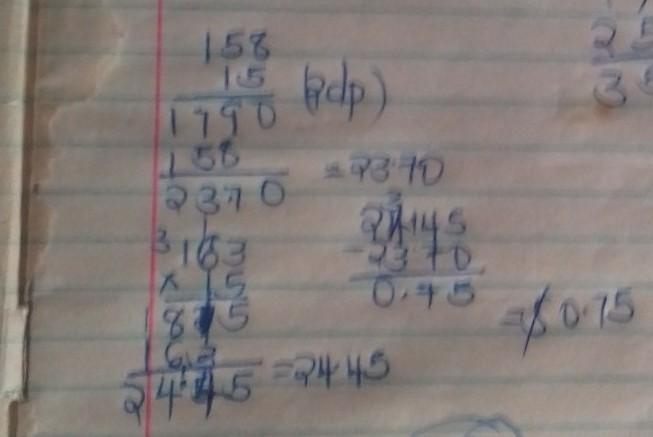 158
15 (2dp)
1790
158
2370 = 23.70
163
x 15
815
163
2445 = 24.45
24.45
- 23.70
0.75
= $0.75
25
35